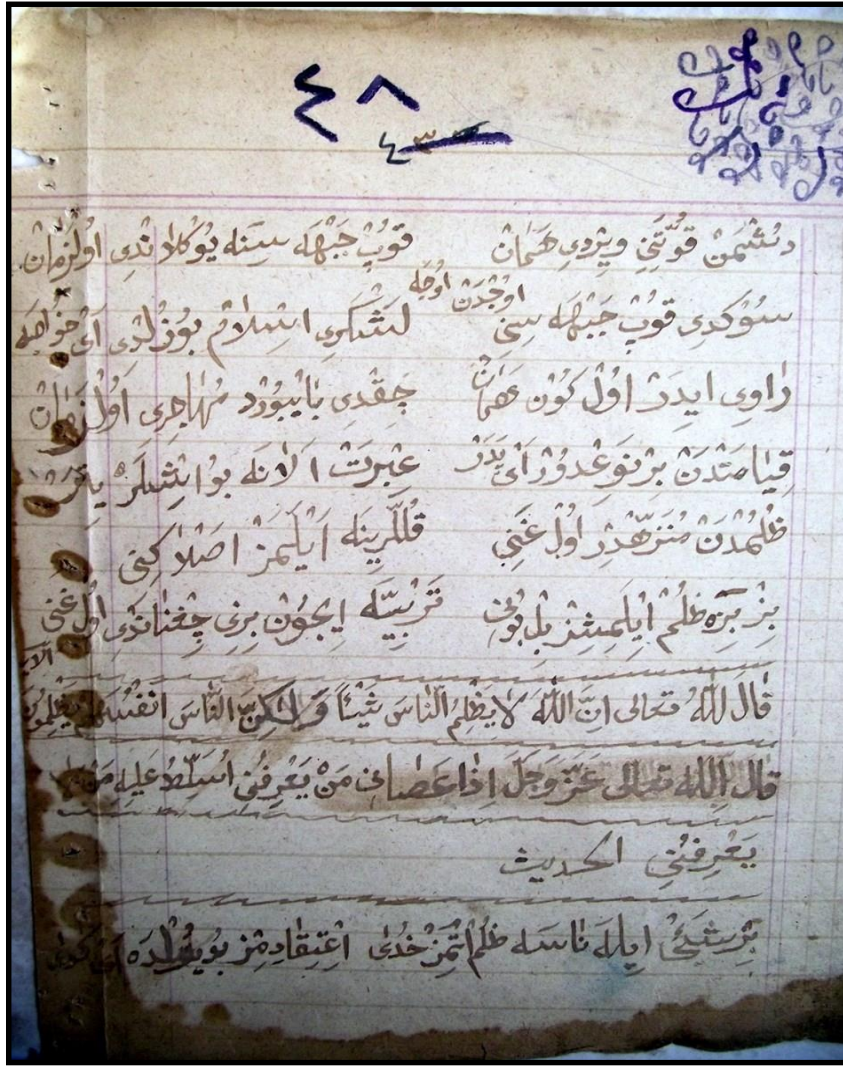 ٤٨
٤٣
دشمن قُوَّتَنِ ويردى هَمَان قوپ جَبْهَه سِنه يوكلاندى اولزمان
اوجدن اوجه
سوكدى قوپ جبهه سِنِى لشكرى اسلام بوزلدى اى خواجه
راوى ايدر اول كون عيان چقدى بايبورد مهاجرى اول زمان
قيامتدن بر نوعدور اى پدر عبرت الانه بو ايشلر يتر
ظلمدن منزهدر اول غنى قُللرينه ايلمز اصلا كنى
بز بزه ظلم ايلمشز بل بونى تربيه ايچون بزى چغناتدى اول غنى
قال الله تعالى ان الله لا يظلم الناس شيئا ولكن الناس انفسهم يظلمون
قال الله تعالى عز وجل اذا عصانى من يعرفنى اسلط عليه من لا
يعرفنى الحديث
بر شئ ايله ناسه ظلم اتمز خداى اعتقادمز بو يولده اى